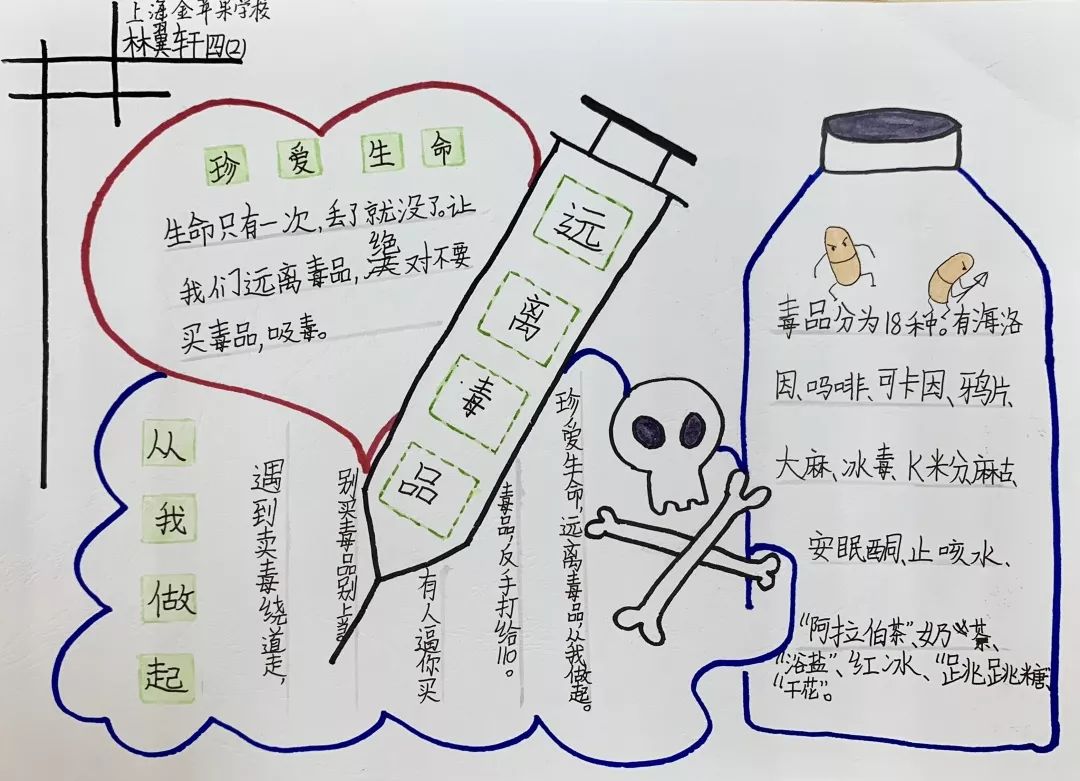 上海金苹果学校
林翼轩四(2)
珍爱生命
生命只有一次,丢了就没了。让
我们远离毒品,绝对不要
买毒品,吸毒。
远离毒品
从我做起
遇到卖毒绕道走,
别买毒品别上当
有人逼你买
毒品,反手打给110。
珍爱生命,远离毒品,从我做起。
毒品分为18种。有海洛
因、吗啡、可卡因、鸦片、
大麻、冰毒、K米分麻古、
安眠酮、止咳水、
“阿拉伯茶”、奶茶、
“浴盐”、红冰、“跳跳糖”、
“干花”。